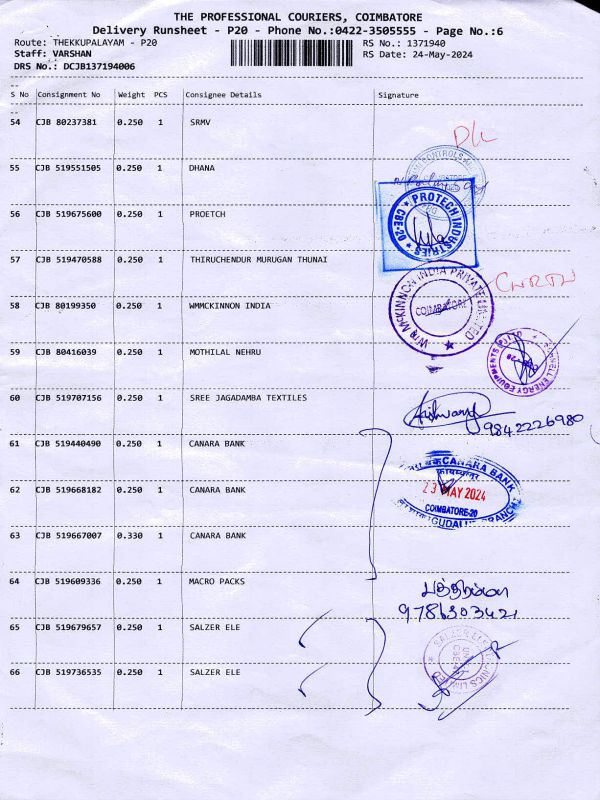 THE PROFESSIONAL COURIERS, COIMBATORE
Delivery Runsheet - P20 - Phone No.:0422-3505555 - Page No.:6
Route: THEKKUPALAYAM - P20
RS No.: 1371940
Staff: VARSHAN
RS Date: 24-May-2024
DRS No.: DCJB137194006
S No Consignment No Weight PCS Consignee Details Signature
54 CJB 80237381 0.250 1 SRMV
D/L
55 CJB 519551505 0.250 1 DHANA
56 CJB 519675600 0.250 1 PROETCH
PROTECH INDUSTRIES
CBE-20
57 CJB 519470588 0.250 1 THIRUCHENDUR MURUGAN THUNAI
58 CJB 80199350 0.250 1 WMMCKINNON INDIA
Wm McKINNON INDIA PRIVATE LIMITED
COIMBATORE
59 CJB 80416039 0.250 1 MOTHILAL NEHRU
ENERGY EQUIPMENTS
60 CJB 519707156 0.250 1 SREE JAGADAMBA TEXTILES
9842226980
61 CJB 519440490 0.250 1 CANARA BANK
62 CJB 519668182 0.250 1 CANARA BANK
CANARA BANK
23 MAY 2024
COIMBATORE-20
63 CJB 519667007 0.330 1 CANARA BANK
64 CJB 519609336 0.250 1 MACRO PACKS
9786303421
65 CJB 519679657 0.250 1 SALZER ELE
66 CJB 519736535 0.250 1 SALZER ELE